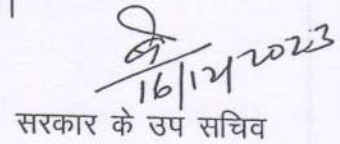 16/12/2023
सरकार के उप सचिव